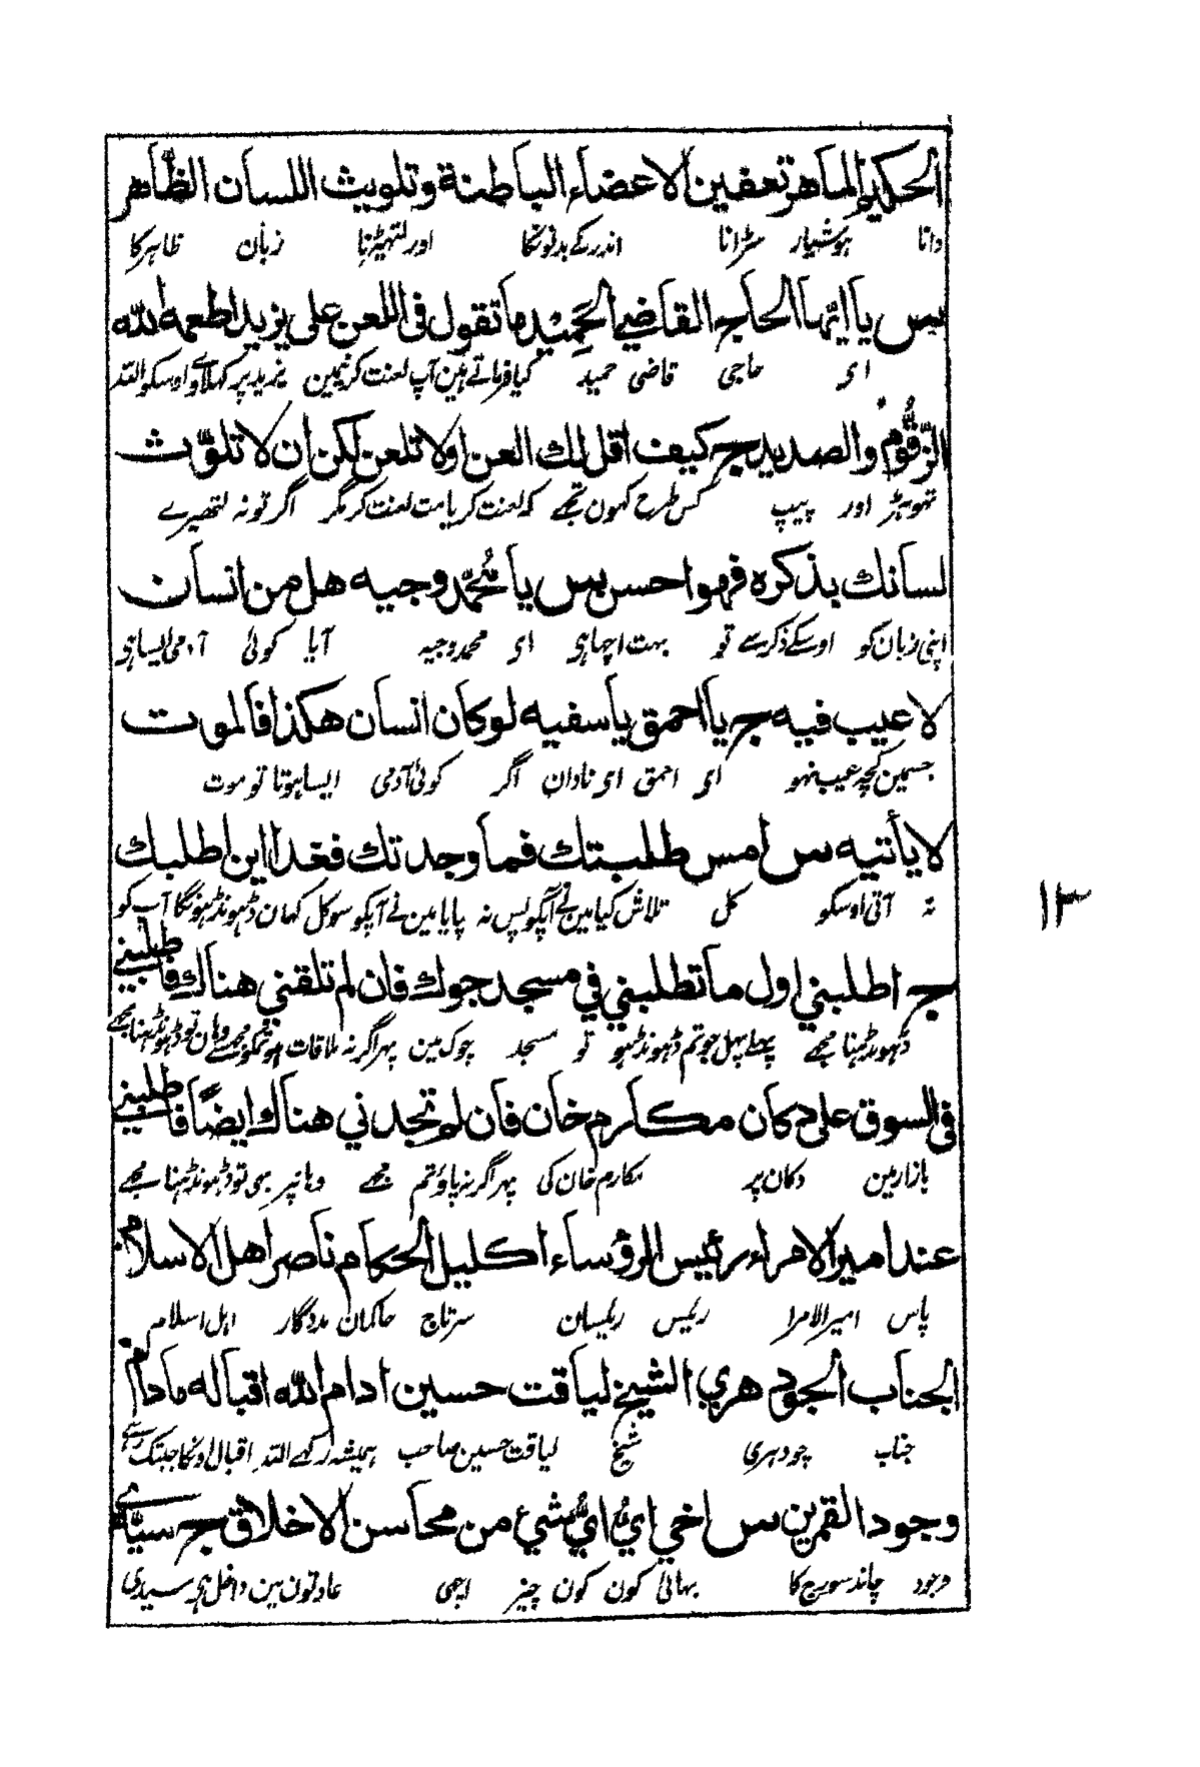 الحكيم الماهر تعفين الاعضاء الباطنة وتلويث اللسان الظاهر
دانا ہوشیار سڑانا اندر کے بدنونکا اور لتھیڑنا زبان ظاہر کا
س يا ايها الحاج القاضي الحميد ما تقول في اللعن على يزيد اطعمه الله
ای حاجی قاضی حمید کیا فرماتے ہین آپ لعنت کرنیمین یزید پر کہلاوے اوسکو اللہ
الزقوم والصديد ج كيف اقل لك العن اولا تلعن لكن ان لا تلوث
تھوہڑ اور پیپ کس طرح کہون تجھے کہ لعنت کر یا مت لعنت کر مگر اگر تو نہ لتھیرے
لسانك بذكره فهو احسن س يا محمد وجيه هل من انسان
اپنی زبان کو اوسکے ذکر سے تو بہت اچھا ہی ای محمد وجیہ آیا کوئی آدمی ایسا ہی
لا عيب فيه ج يا احمق يا سفيه لو كان انسان هكذا فالموت
جسمین کچھ عیب نہو ای احمق ای نادان اگر کوئی آدمی ایسا ہوتا تو موت
لا يأتيه س امس طلبتك فما وجدتك فغدا اين اطلبك
نہ آتی اوسکو کل تلاش کیا مین نے آپکو پس نہ پایا مین نے آپکو سو کل کہان ڈہونڈہونگا آپ کو
١٣
ج اطلبني اول ما تطلبني في مسجد جوك فان لم تلقني هناك فاطلبني
ڈہونڈہنا مجھے پہلے پہل جو تم ڈہونڈہو تو مسجد چوک مین پہر اگر نہ ملاقات ہو تمکو مجھسے وہان تو ڈہونڈہنا مجھے
في السوق على دكان مكارم خان فان لم تجدني هناك ايضاً فاطلبني
بازار مین دکان پر مکارم خان کی پہر اگر نہ پاؤ تم مجھے وہانپر بھی تو ڈہونڈہنا مجھے
عند امير الامراء رئيس الرؤساء اكليل الحكام ناصر اهل الاسلام
پاس امیر الامرا رئیس رئیسان سرتاج حاکمان مددگار اہل اسلام
الجناب الجودهري الشيخ لياقت حسين ادام الله اقباله ما دام
جناب چودہری شیخ لیاقت حسین صاحب ہمیشہ رکہے اللہ اقبال اونکا جبتک رہے
وجود القمرين س اخي اي اي شيء من محاسن الاخلاق ج سيدي
وجود چاند سورج کا بہائی کون کون چیز اچھی عادتون مین داخل ہی سیدی